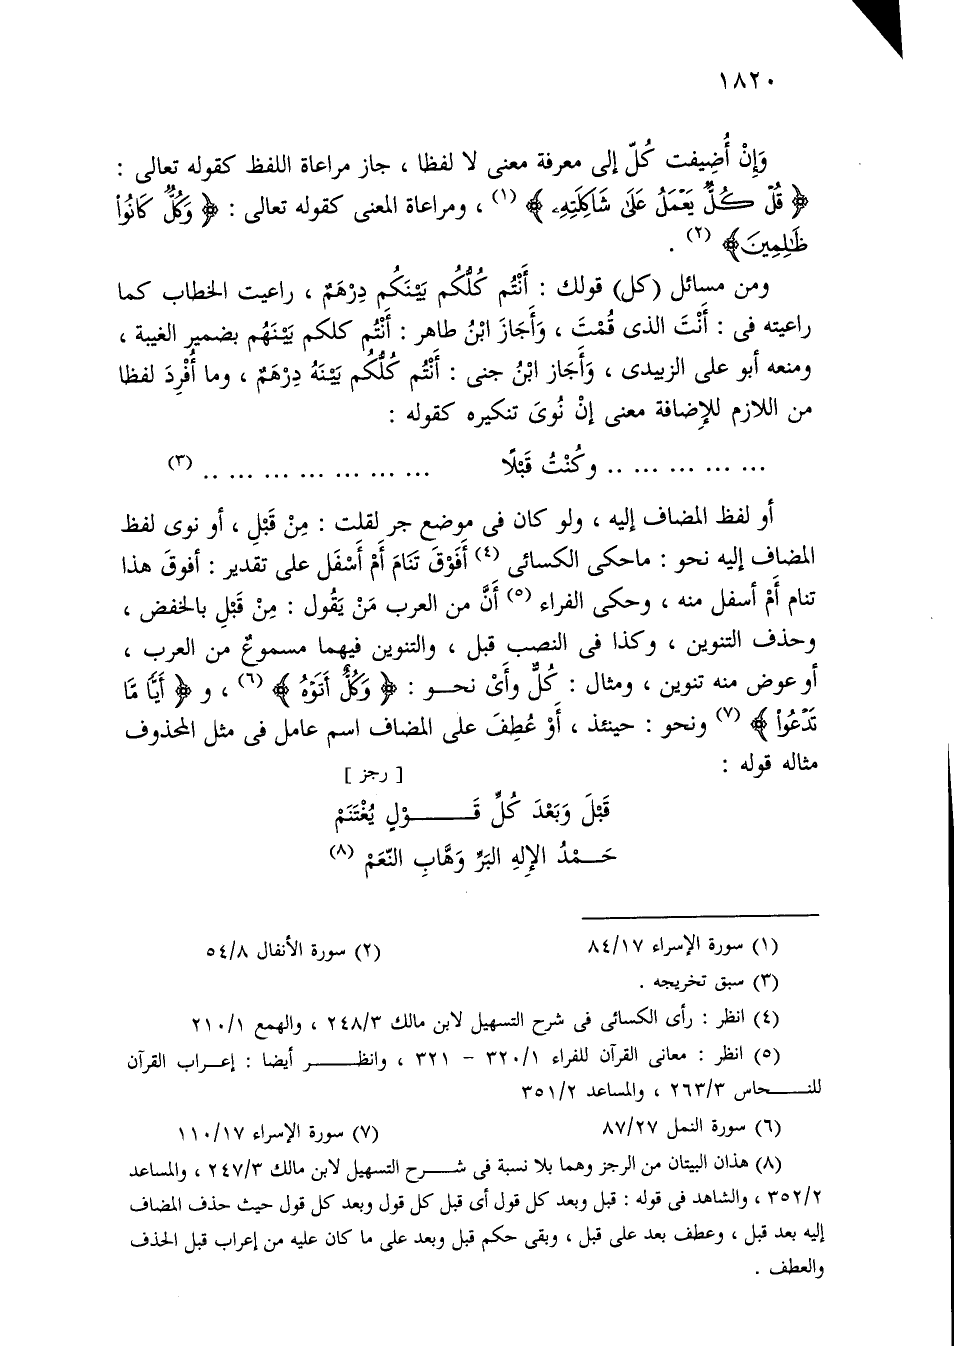 ١٨٢٠
وَإِنْ أُضِيفت كُلّ إلى معرفة معنى لا لفظا ، جاز مراعاة اللفظ كقوله تعالى :
﴿ قُلْ كُلٌّ يَعْمَلُ عَلَىٰ شَاكِلَتِهِۦ ﴾ (١) ، ومراعاة المعنى كقوله تعالى : ﴿ وَكُلٌّ كَانُوا۟
ظَٰلِمِينَ ﴾ (٢) .
ومن مسائل (كل) قولك : أَنْتُم كُلُّكُم بَيْنَكُم دِرْهَمٌ ، راعيت الخطاب كما
راعيته فى : أَنْتَ الذى قُمْتَ ، وَأَجَازَ ابْنُ طاهر : أَنْتُم كلكم بَيْنَهُم بضمير الغيبة ،
ومنعه أبو على الزبيدى ، وَأَجَاز ابْنُ جنى : أَنْتُم كُلُّكُم بَيْنَهُ دِرْهَمٌ ، وما أُفْرِدَ لفظا
من اللازم للإِضافة معنى إنْ نُوىَ تنكيره كقوله :
... ... ... ... .. وكُنْتُ قَبْلًا ... ... ... ... ... ... .. (٣)
أو لفظ المضاف إليه ، ولو كان فى موضع جر لقلت : مِنْ قَبْلِ ، أو نوى لفظ
المضاف إليه نحو : ماحكى الكسائى (٤) أَفَوْقَ تَنَامَ أَمْ أَسْفَل على تقدير : أفوقَ هذا
تنام أَمْ أسفل منه ، وحكى الفراء (٥) أَنَّ من العرب مَنْ يَقُول : مِنْ قَبْلِ بالخفض ،
وحذف التنوين ، وكذا فى النصب قبل ، والتنوين فيهما مسموعٌ من العرب ،
أو عوض منه تنوين ، ومثال : كُلٌّ وأَىْ نحـو : ﴿ وَكُلٌّ أَتَوْهُ ﴾ (٦) ، و ﴿ أَيًّا مَّا
تَدْعُوا۟ ﴾ (٧) ونحو : حينئذ ، أَوْ عُطِفَ على المضاف اسم عامل فى مثل المحذوف
مثاله قوله :
[ رجز ]
قَبْلَ وَبَعْدَ كُلِّ قَـــوْلٍ يُغْتَنَمْ
حَـــمْدُ الإلهِ البَرِّ وَهَّابِ النّعَمْ (٨)
(١) سورة الإسراء ٨٤/١٧ (٢) سورة الأنفال ٥٤/٨
(٣) سبق تخريجه .
(٤) انظر : رأى الكسائى فى شرح التسهيل لابن مالك ٢٤٨/٣ ، والهمع ٢١٠/١
(٥) انظر : معانى القرآن للفراء ٣٢٠/١ – ٣٢١ ، وانظـــر أيضا : إعـراب القرآن
للنـــحاس ٢٦٣/٣ ، والمساعد ٣٥١/٢
(٦) سورة النمل ٨٧/٢٧ (٧) سورة الإسراء ١١٠/١٧
(٨) هذان البيتان من الرجز وهما بلا نسبة فى شـــرح التسهيل لابن مالك ٢٤٧/٣ ، والمساعد
٣٥٢/٢ ، والشاهد فى قوله : قبل وبعد كل قول أى قبل كل قول وبعد كل قول حيث حذف المضاف
إليه بعد قبل ، وعطف بعد على قبل ، وبقى حكم قبل وبعد على ما كان عليه من إعراب قبل الحذف
والعطف .